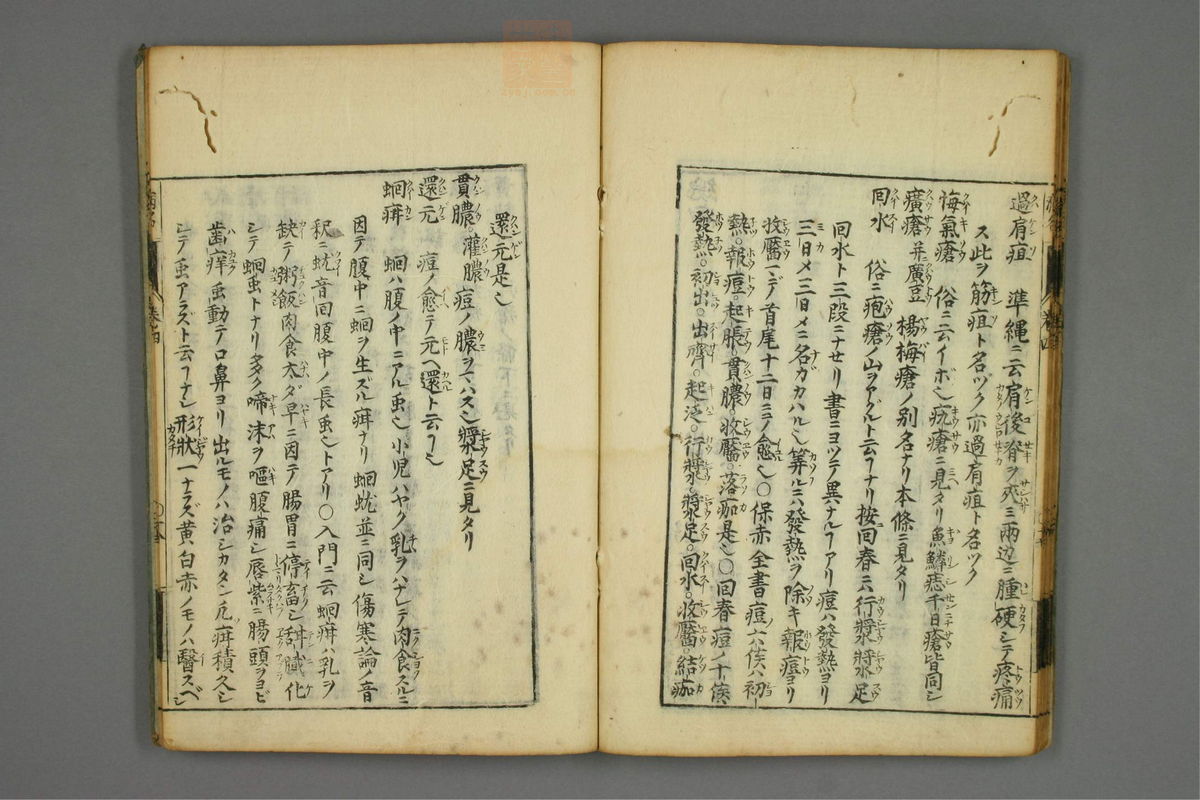 過肩疽 準縄ニ云肩後脊ヲ夾ミ兩辺ニ腫硬シテ疼痛
ス此ヲ筋疽ト名ヅク亦過肩疽ト名ツク
悔氣瘡 俗ニ云イボ也疣瘡ニ見タリ魚鱗痣千日瘡皆同シ
癀瘡并廣豆 楊梅瘡ノ別名ナリ本條ニ見タリ
回水 俗ニ疱瘡ノ山ヲアグルト云フナリ按回春ニ行漿漿足
回水ト三段ニナセリ書ニヨツテ異ナルフアリ痘ハ發熱ヨリ
三日メ三日メニ名カカハル也算ルニハ發熱ヲ除キ報痘ヨリ
收靨マデ首尾十二日ニノ愈也○保赤全書痘六候ハ初
熱。報痘。起脹。貫膿。收靨。落痂是也○回春痘ノ十候
發熱。初出。出齊。起泛。行漿。漿足。回水。收靨。結痂
還元是也
貫膿。灌膿 痘ノ膿ヲモハス也漿足ニ見タリ
還元 痘ノ愈テ元ヘ還ト云フ也
蛔疳 蛔ハ腹ノ中ニアル虫也小児ハヤク乳ヲハナレテ肉食スルニ
因テ腹中ニ蛔ヲ生ズル疳ナリ 蛔蚘並ニ同シ傷寒論ノ音
釈ニ蚘音回腹中ノ長虫也トアリ○入門ニ云蛔疳ハ乳ヲ
缺テ粥飯肉食太ダ早ニ因テ腸胃ニ停畜シ
シテ蛔虫トナリ多ク啼沫ヲ嘔腹痛シ唇紫ニ腸頭ヲヨビ
齒痒虫動テ口鼻ヨリ出ルモノハ治シカタシ凡疳積久シ
シテ虫アラズト云フナシ形狀一ナラズ黄白赤ノモノハ醫スベシ